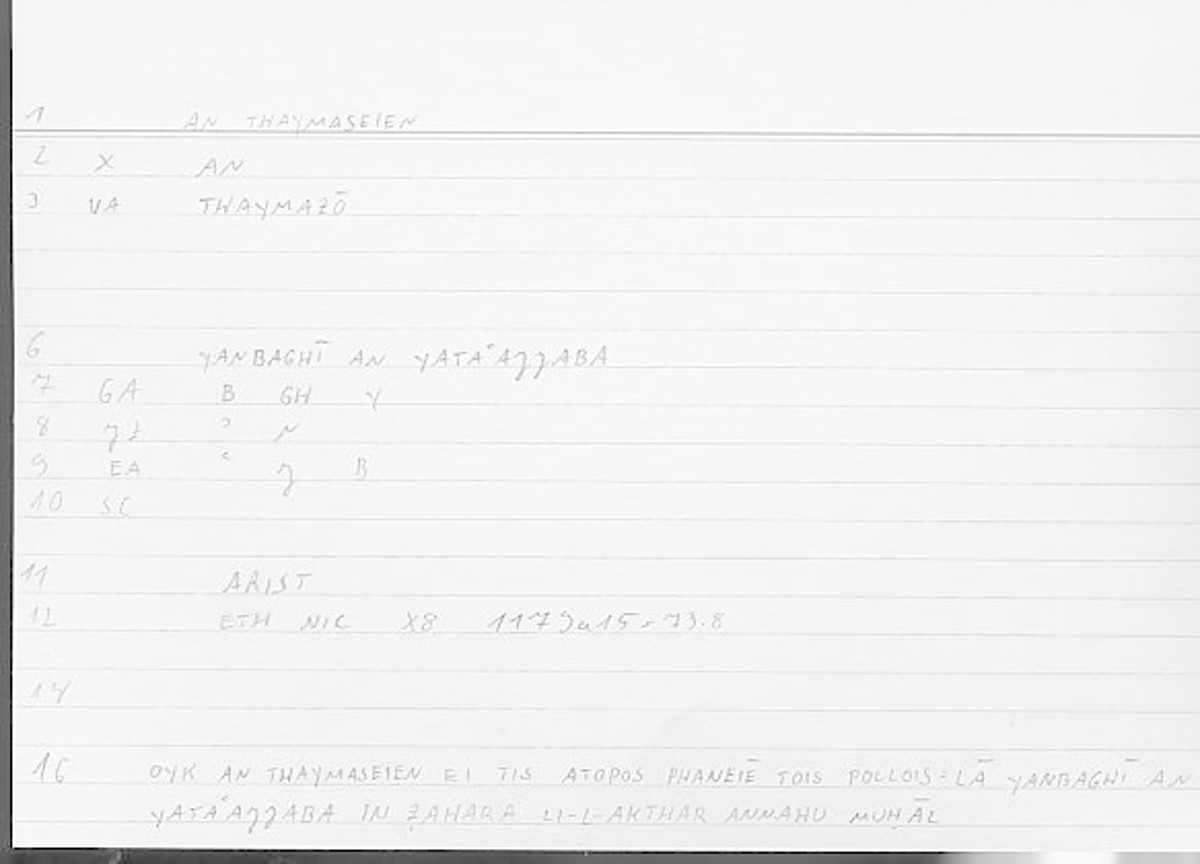 1 AN THAYMASEIEN
2 X AN
3 VA THAYMAZŌ
6 YANBAGHĪ AN YATAʿAJJABA
7 GA B GH Y
8 JZ ʾ N
9 EA ʿ J B
10 SC
11 ARIST
12 ETH NIC X8 1179a15 = 73.8
14
16 OYK AN THAYMASEIEN EI TIS ATOPOS PHANEIĒ TOIS POLLOIS = LĀ YANBAGHĪ AN
YATAʿAJJABA IN ẒAHARA LI-L-AKTHAR ANNAHU MUḤĀL